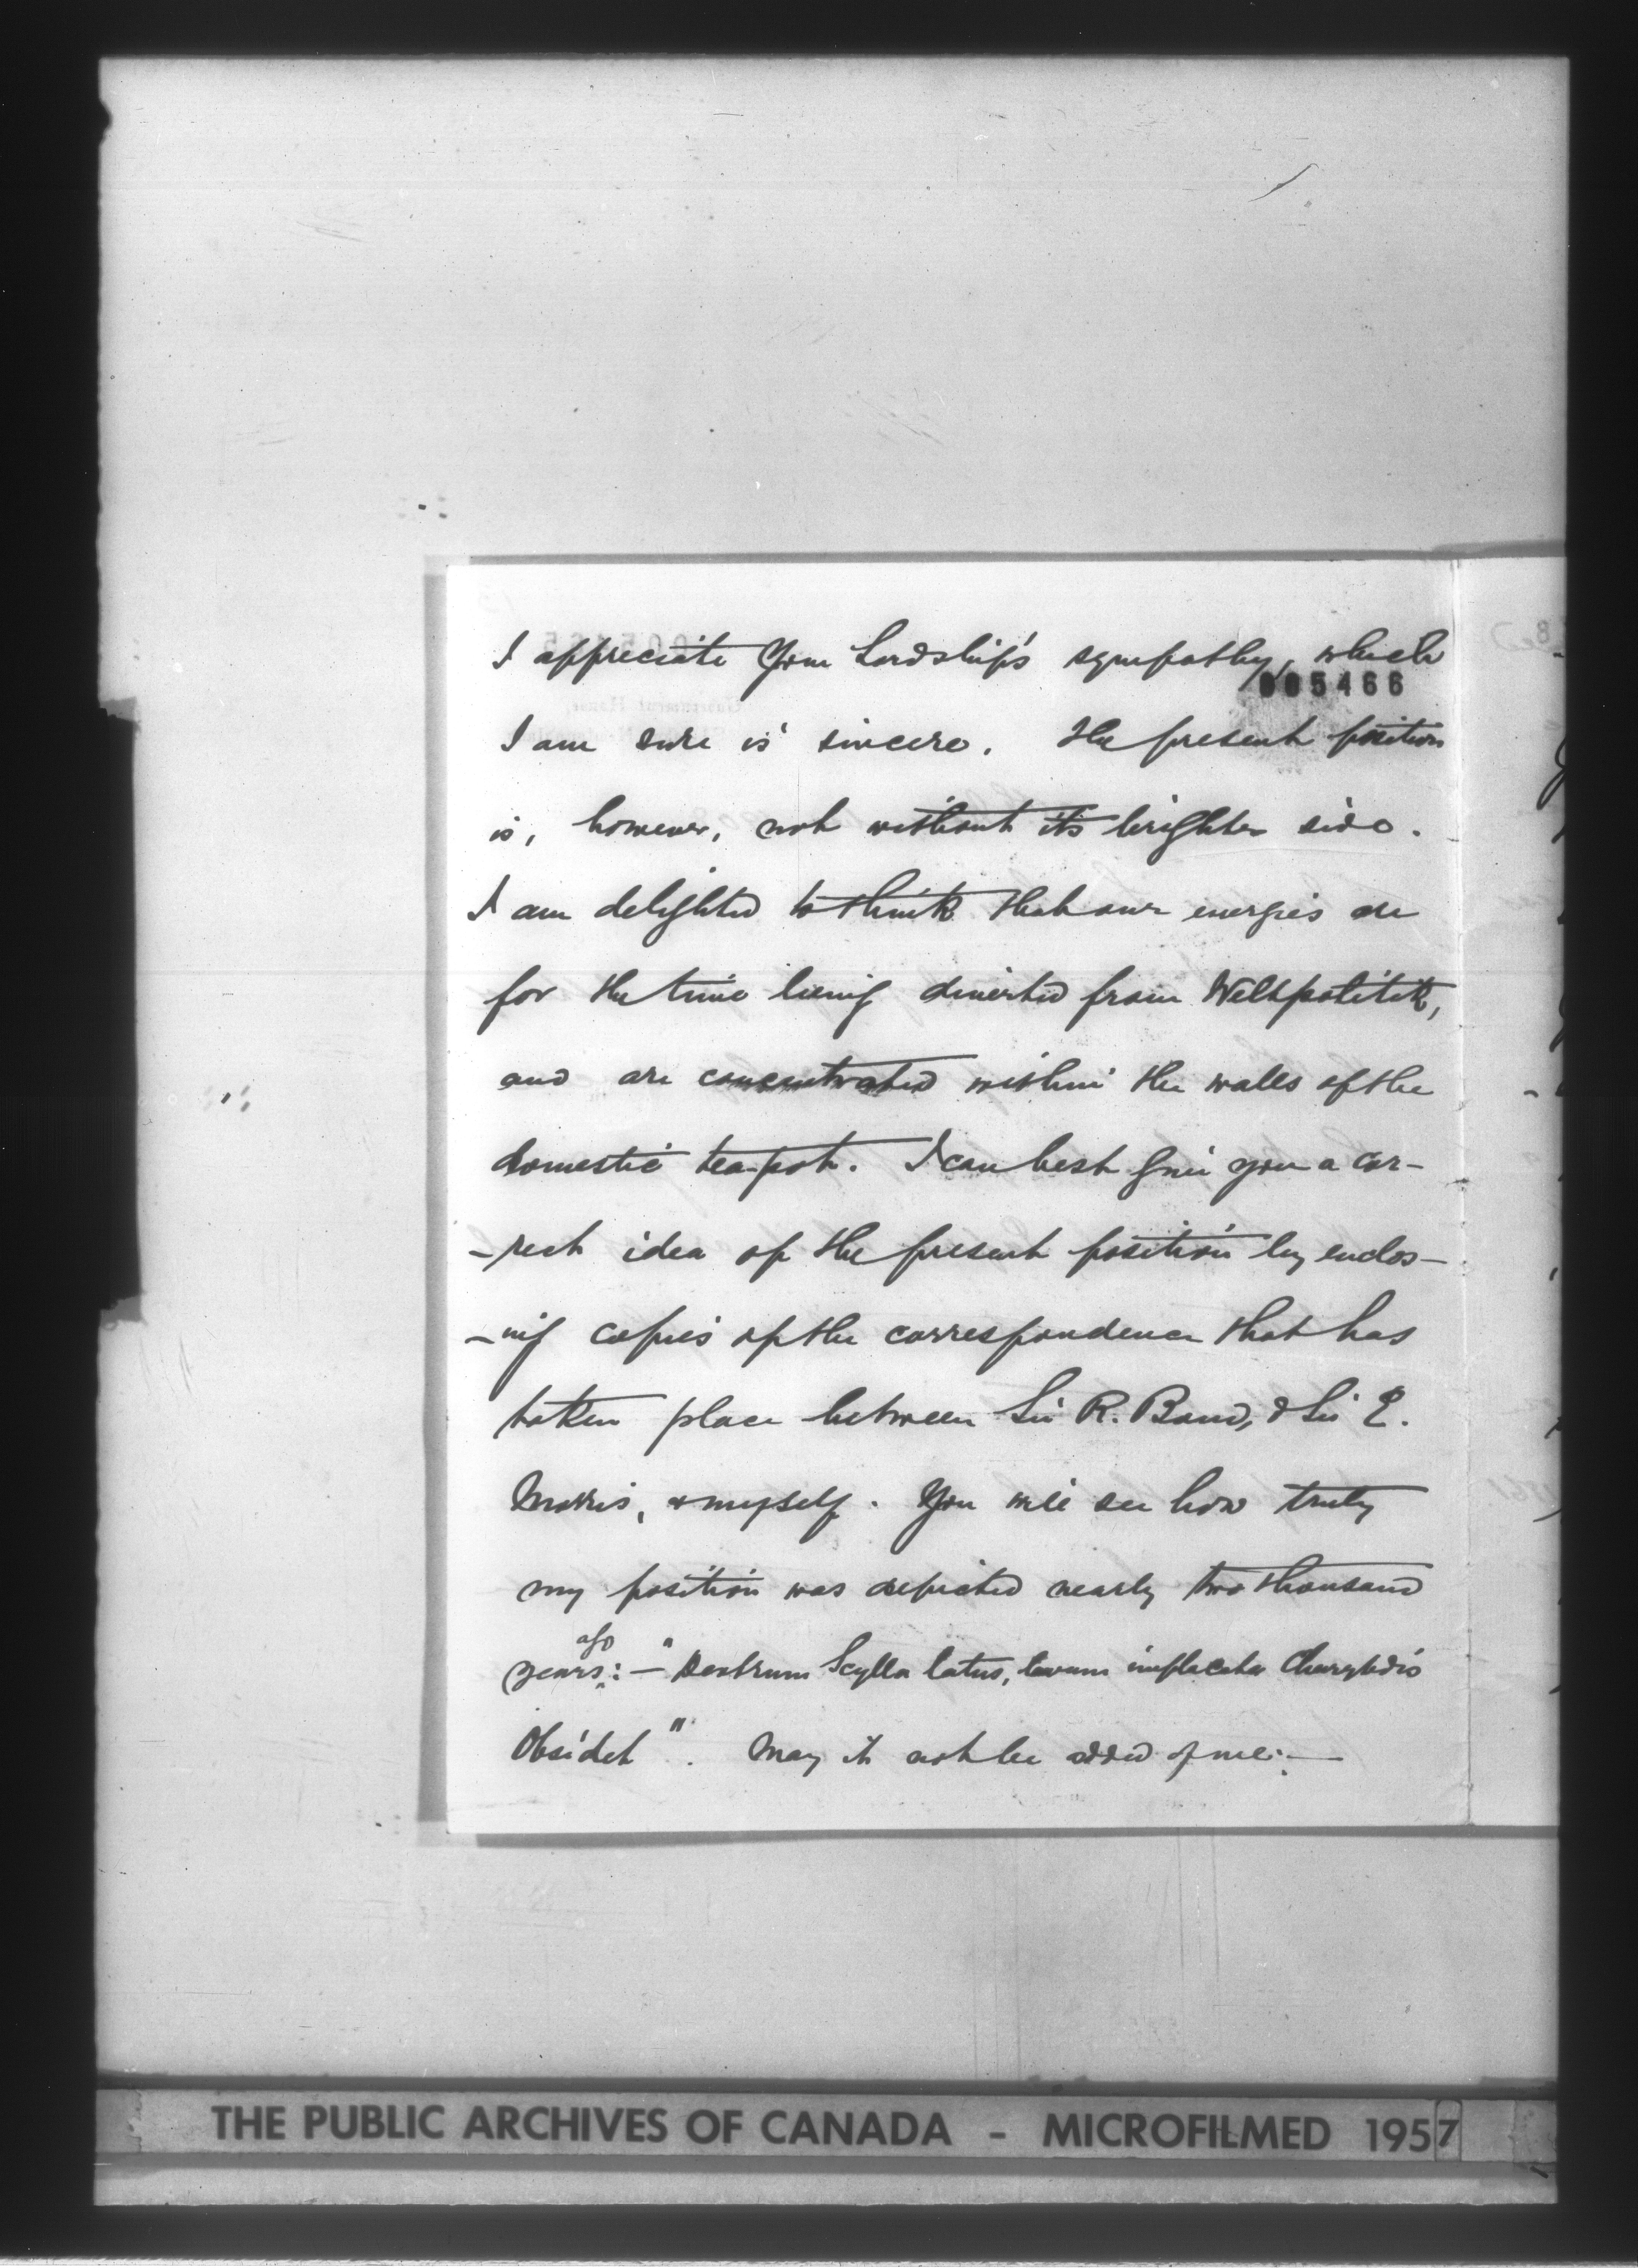 I appreciate Your Lordship's sympathy, which
005466
I am sure is sincere. The present position
is, however, not without its brighter side.
I am delighted to think that our energies are
for the time being diverted from Weltpolitik,
and are concentrated within the walls of the
domestic tea-pot. I can best give you a cor-
-rect idea of the present position by enclos-
-ing copies of the correspondence that has
taken place between Sir R. Bond, & Sir E.
Morris, & myself. You will see how truly
my position was depicted nearly two thousand
years ago: - "Dextrum Scylla latus, levum implacata Charybdis
Obsidet". May it not be added of me: -
THE PUBLIC ARCHIVES OF CANADA - MICROFILMED 1957